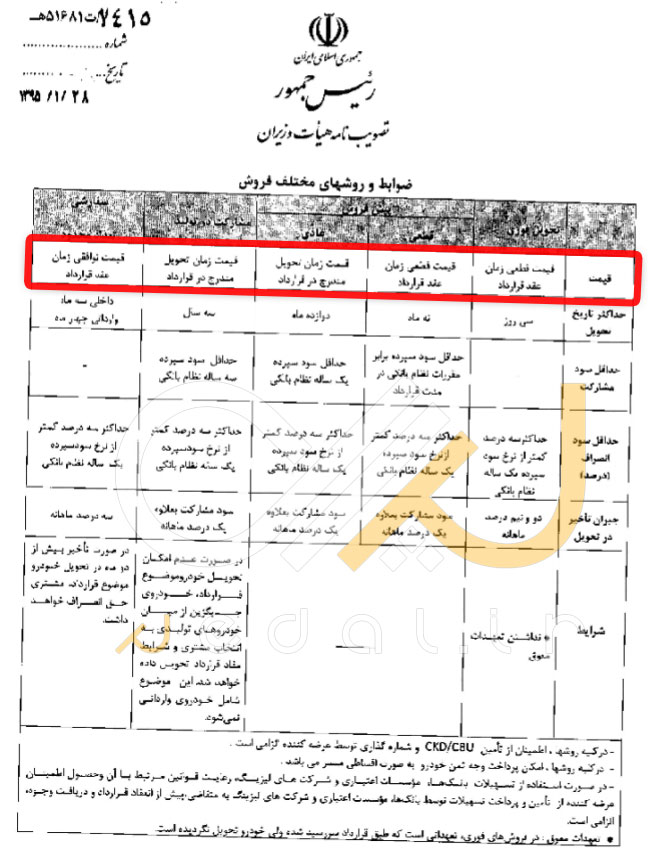 ۷۴۱۵/ت۵۱۶۸۱هـ
شماره
تاریخ
۱۳۹۵/۱/۲۸
جمهوری اسلامی ایران
رئیس جمهور
تصویب نامه هیأت وزیران
ضوابط و روشهای مختلف فروش
تحویل فوری
پیش فروش
قطعی
عادی
مشارکت در تولید
سفارشی
قیمت
قیمت قطعی زمان
عقد قرارداد
قیمت قطعی زمان
عقد قرارداد
قیمت زمان تحویل
مندرج در قرارداد
قیمت زمان تحویل
مندرج در قرارداد
قیمت توافقی زمان
عقد قرارداد
حداکثر تاریخ
تحویل
سی روز
نه ماه
دوازده ماه
سه سال
داخلی سه ماه
وارداتی چهار ماه
حداقل سود
مشارکت
حداقل سود سپرده برابر
مقررات نظام بانکی در
مدت قرارداد
حداقل سود سپرده
یک ساله نظام بانکی
حداقل سود سپرده
سه ساله نظام بانکی
-
حداقل سود
انصراف
(درصد)
حداکثر سه درصد
کمتر از نرخ سود
سپرده یک ساله
نظام بانکی
حداکثر سه درصد کمتر
از نرخ سود سپرده
یک ساله نظام بانکی
حداکثر سه درصد کمتر
از نرخ سود سپرده
یک ساله نظام بانکی
حداکثر سه درصد کمتر
از نرخ سود سپرده
یک ساله نظام بانکی
حداکثر سه درصد کمتر
از نرخ سود سپرده
یک ساله نظام بانکی
جبران تأخیر
در تحویل
دو و نیم درصد
ماهانه
سود مشارکت بعلاوه
یک درصد ماهانه
سود مشارکت بعلاوه
یک درصد ماهانه
سود مشارکت بعلاوه
یک درصد ماهانه
سه درصد ماهانه
شرایط
* نداشتن تعهدات
معوق
در صورت عدم امکان
تحویل خودرو موضوع
قرارداد، خودروی
جایگزین از میان
خودروهای تولیدی به
انتخاب مشتری و شرایط
مفاد قرارداد تحویل داده
خواهد شد. این موضوع
شامل خودروی وارداتی
نمی‌شود.
در صورت تأخیر بیش از
دو ماه در تحویل خودرو
موضوع قرارداد، مشتری
حق انصراف خواهد
داشت.
- در کلیه روشها، اطمینان از تأمین CKD/CBU و شماره گذاری توسط عرضه کننده الزامی است.
- در کلیه روشها، امکان پرداخت وجه ثمن خودرو به صورت اقساطی میسر می باشد.
- در صورت استفاده از تسهیلات بانکها، مؤسسات اعتباری و شرکت های لیزینگ، رعایت قوانین مرتبط با آن وحصول اطمینان
عرضه کننده از تأمین و پرداخت تسهیلات توسط بانکها، مؤسسات اعتباری و شرکت های لیزینگ به متقاضی، پیش از انعقاد قرارداد و دریافت وجوه،
الزامی است.
* تعهدات معوق: در فروش‌های فوری، تعهداتی است که طبق قرارداد سررسید شده ولی خودرو تحویل نگردیده است.
pedal.ir